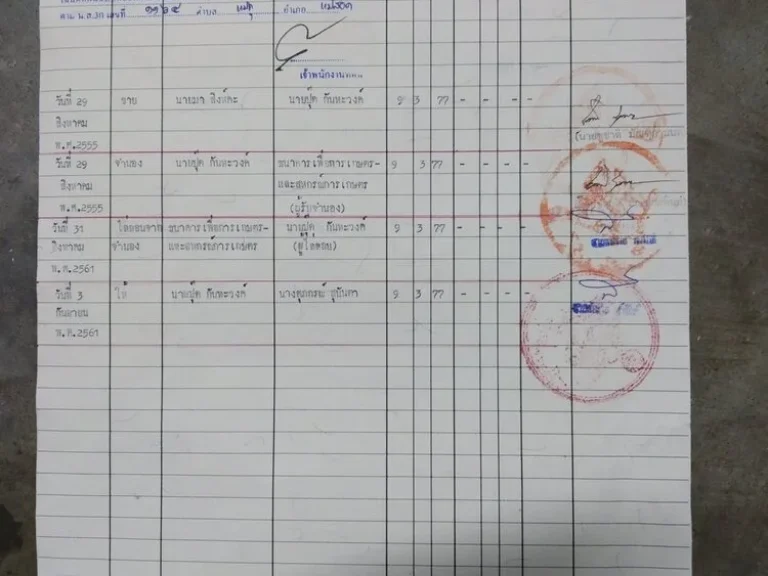 ตาม น.ส.3ก เลขที่ ๑๑๖๕ ตำบล อำเภอ แม่สอด
เจ้าพนักงานที่ดิน
วันที่ 29 ขาย นายมา นายปุ๊ด กันทะวงค์ 9 3 77 - - - -
สิงหาคม
พ.ศ.2555
วันที่ 29 จำนอง นายปุ๊ด กันทะวงค์ ธนาคารเพื่อการเกษตร- 9 3 77 - - - -
สิงหาคม และสหกรณ์การเกษตร
พ.ศ.2555 (ผู้รับจำนอง)
วันที่ 31 ไถ่ถอนจาก ธนาคารเพื่อการเกษตร- นายปุ๊ด กันทะวงค์ 9 3 77 - - - -
สิงหาคม จำนอง และสหกรณ์การเกษตร (ผู้ไถ่ถอน)
พ.ศ.2561
วันที่ 3 ให้ นายปุ๊ด กันทะวงค์ 9 3 77 - - - -
กันยายน
พ.ศ.2561